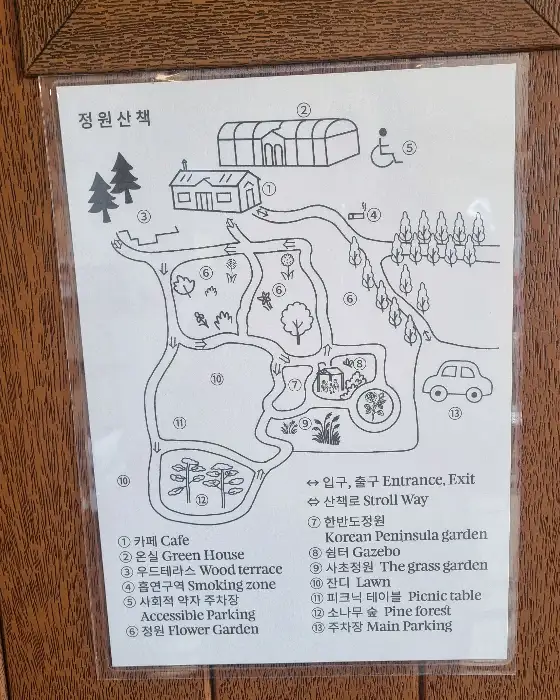 정원산책
②
⑤
①
③
④
⑥
⑥
⑥
⑧
⑩
⑦
⑬
⑪
⑨
⑩
⑫
↔ 입구, 출구 Entrance, Exit
⇔ 산책로 Stroll Way
① 카페 Cafe
② 온실 Green House
③ 우드테라스 Wood terrace
④ 흡연구역 Smoking zone
⑤ 사회적 약자 주차장
Accessible Parking
⑥ 정원 Flower Garden
⑦ 한반도정원
Korean Peninsula garden
⑧ 쉼터 Gazebo
⑨ 사초정원 The grass garden
⑩ 잔디 Lawn
⑪ 피크닉 테이블 Picnic table
⑫ 소나무 숲 Pine forest
⑬ 주차장 Main Parking